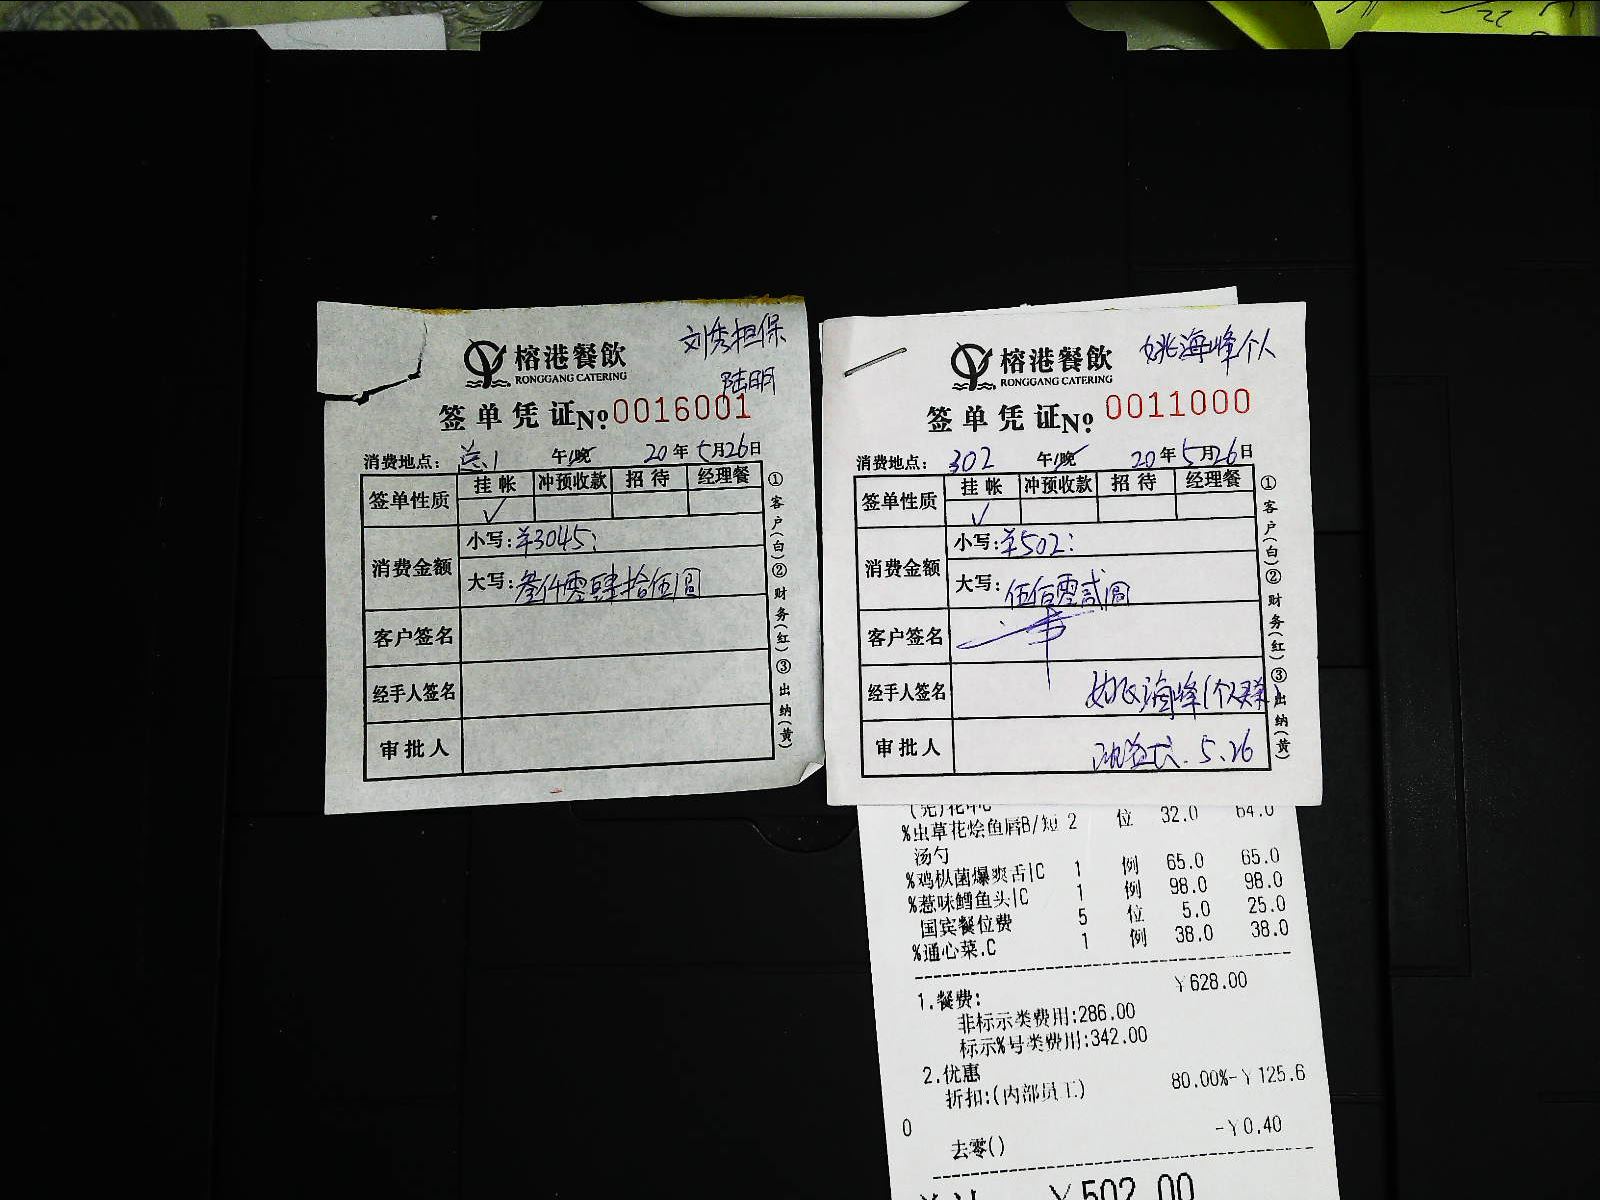 刘秀担保
陆明
榕港餐飲
RONGGANG CATERING
签单凭证 No: 0016001
消费地点: 总.1 午/晚 20年5月26日
签单性质 挂帐 冲预收款 招待 经理餐
✓
消费金额 小写: ¥3045:
大写: 叁仟零肆拾伍圆
客户签名
经手人签名
审批人
①客户(白)②财务(红)③出纳(黄)
姚海峰个人
榕港餐飲
RONGGANG CATERING
签单凭证 No: 0011000
消费地点: 302 午/晚 20年5月26日
签单性质 挂帐 冲预收款 招待 经理餐
✓
消费金额 小写: ¥502:
大写: 伍佰零贰圆
客户签名
经手人签名 姚海峰(个人
审批人 5.26
①客户(白)②财务(红)③出纳(黄)
%虫草花烩鱼唇B/短 2 位 32.0 64.0
汤勺
%鸡枞菌爆爽舌|C 1 例 65.0 65.0
%惹味鳕鱼头|C 1 例 98.0 98.0
国宾餐位费 5 位 5.0 25.0
%通心菜.C 1 例 38.0 38.0
1.餐费: ¥628.00
非标示类费用:286.00
标示%号类费用:342.00
2.优惠
折扣:(内部员工) 80.00%-¥125.6
0
去零() -¥0.40
¥502.00